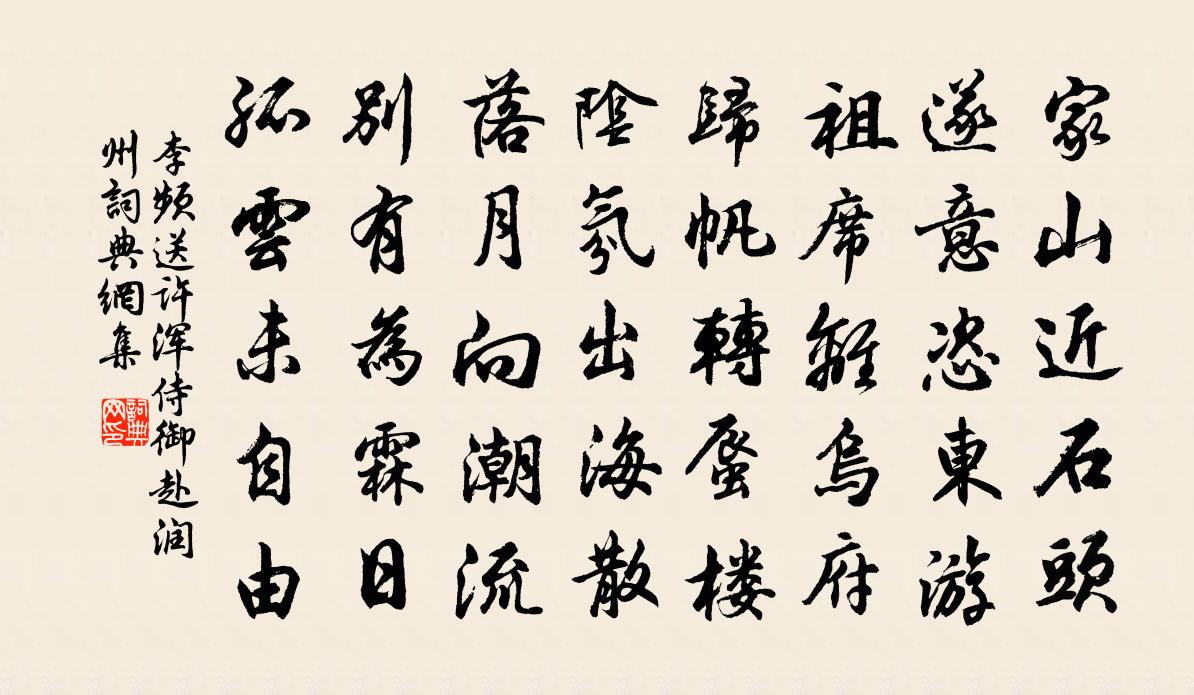 家山近石頭
遂意恣東游
祖席離烏府
歸帆轉蜃楼
陰氛出海散
落月向潮流
別有為霖日
孤雲未自由
李频送许浑侍御赴润
州詞典網集
詞典
网印